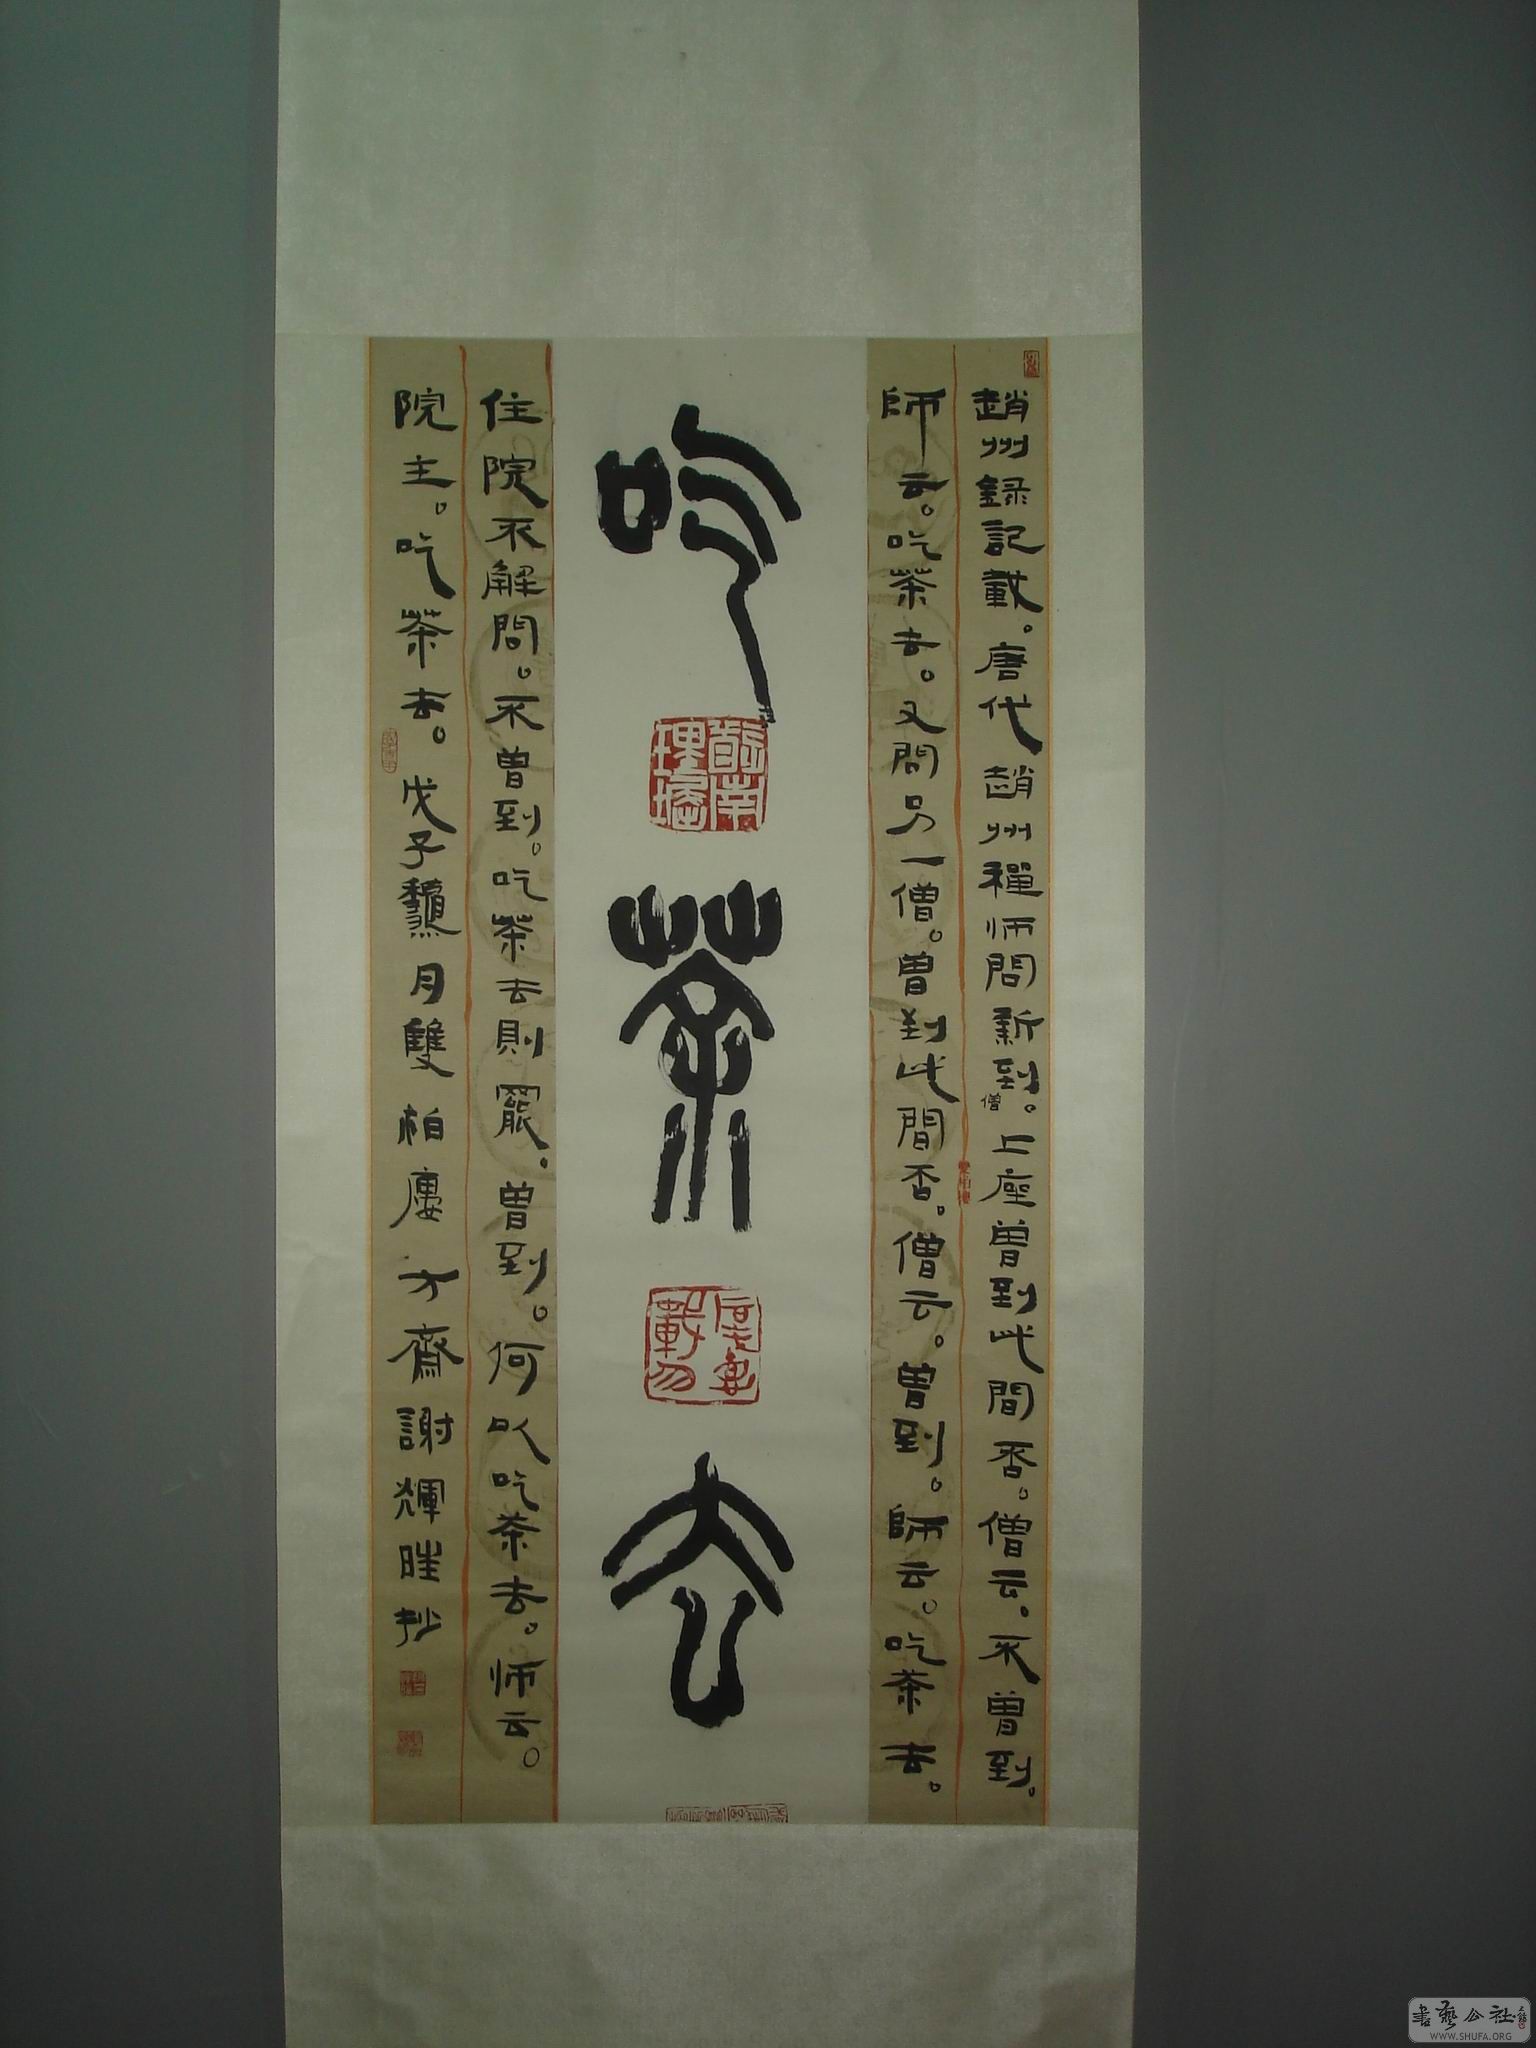 趙州録記載。唐代趙州禪师問新到僧。上座曾到此間否。僧云。不曾到。
師云。吃茶去。又問另一僧。曾到此間否。僧云。曾到。師云。吃茶去。
吃茶去
住院不解問。不曾到。吃茶去則罷。曾到。何以吃茶去。师云。
院主。吃茶去。戊子龝月雙柏廔方齋謝輝 抄
雙柏樓
書藝公社
WWW.SHUFA.ORG